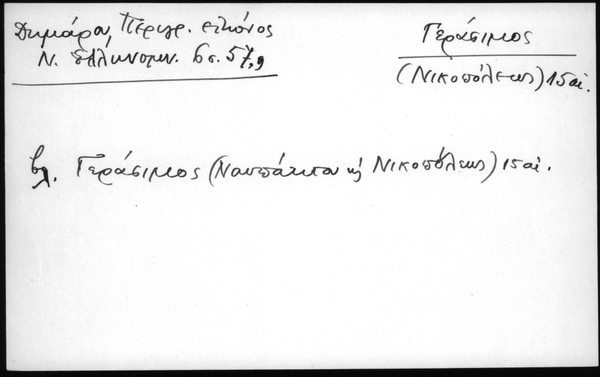 Δημάρα, Περιγρ. εικόνος
Ν. Ελληνομν. 6 σ. 57,9
Γεράσιμος
(Νικοπόλεως) 15 αἰ.
βλ. Γεράσιμος (Ναυπάκτου κ̀ Νικοπόλεως) 15 αἰ.